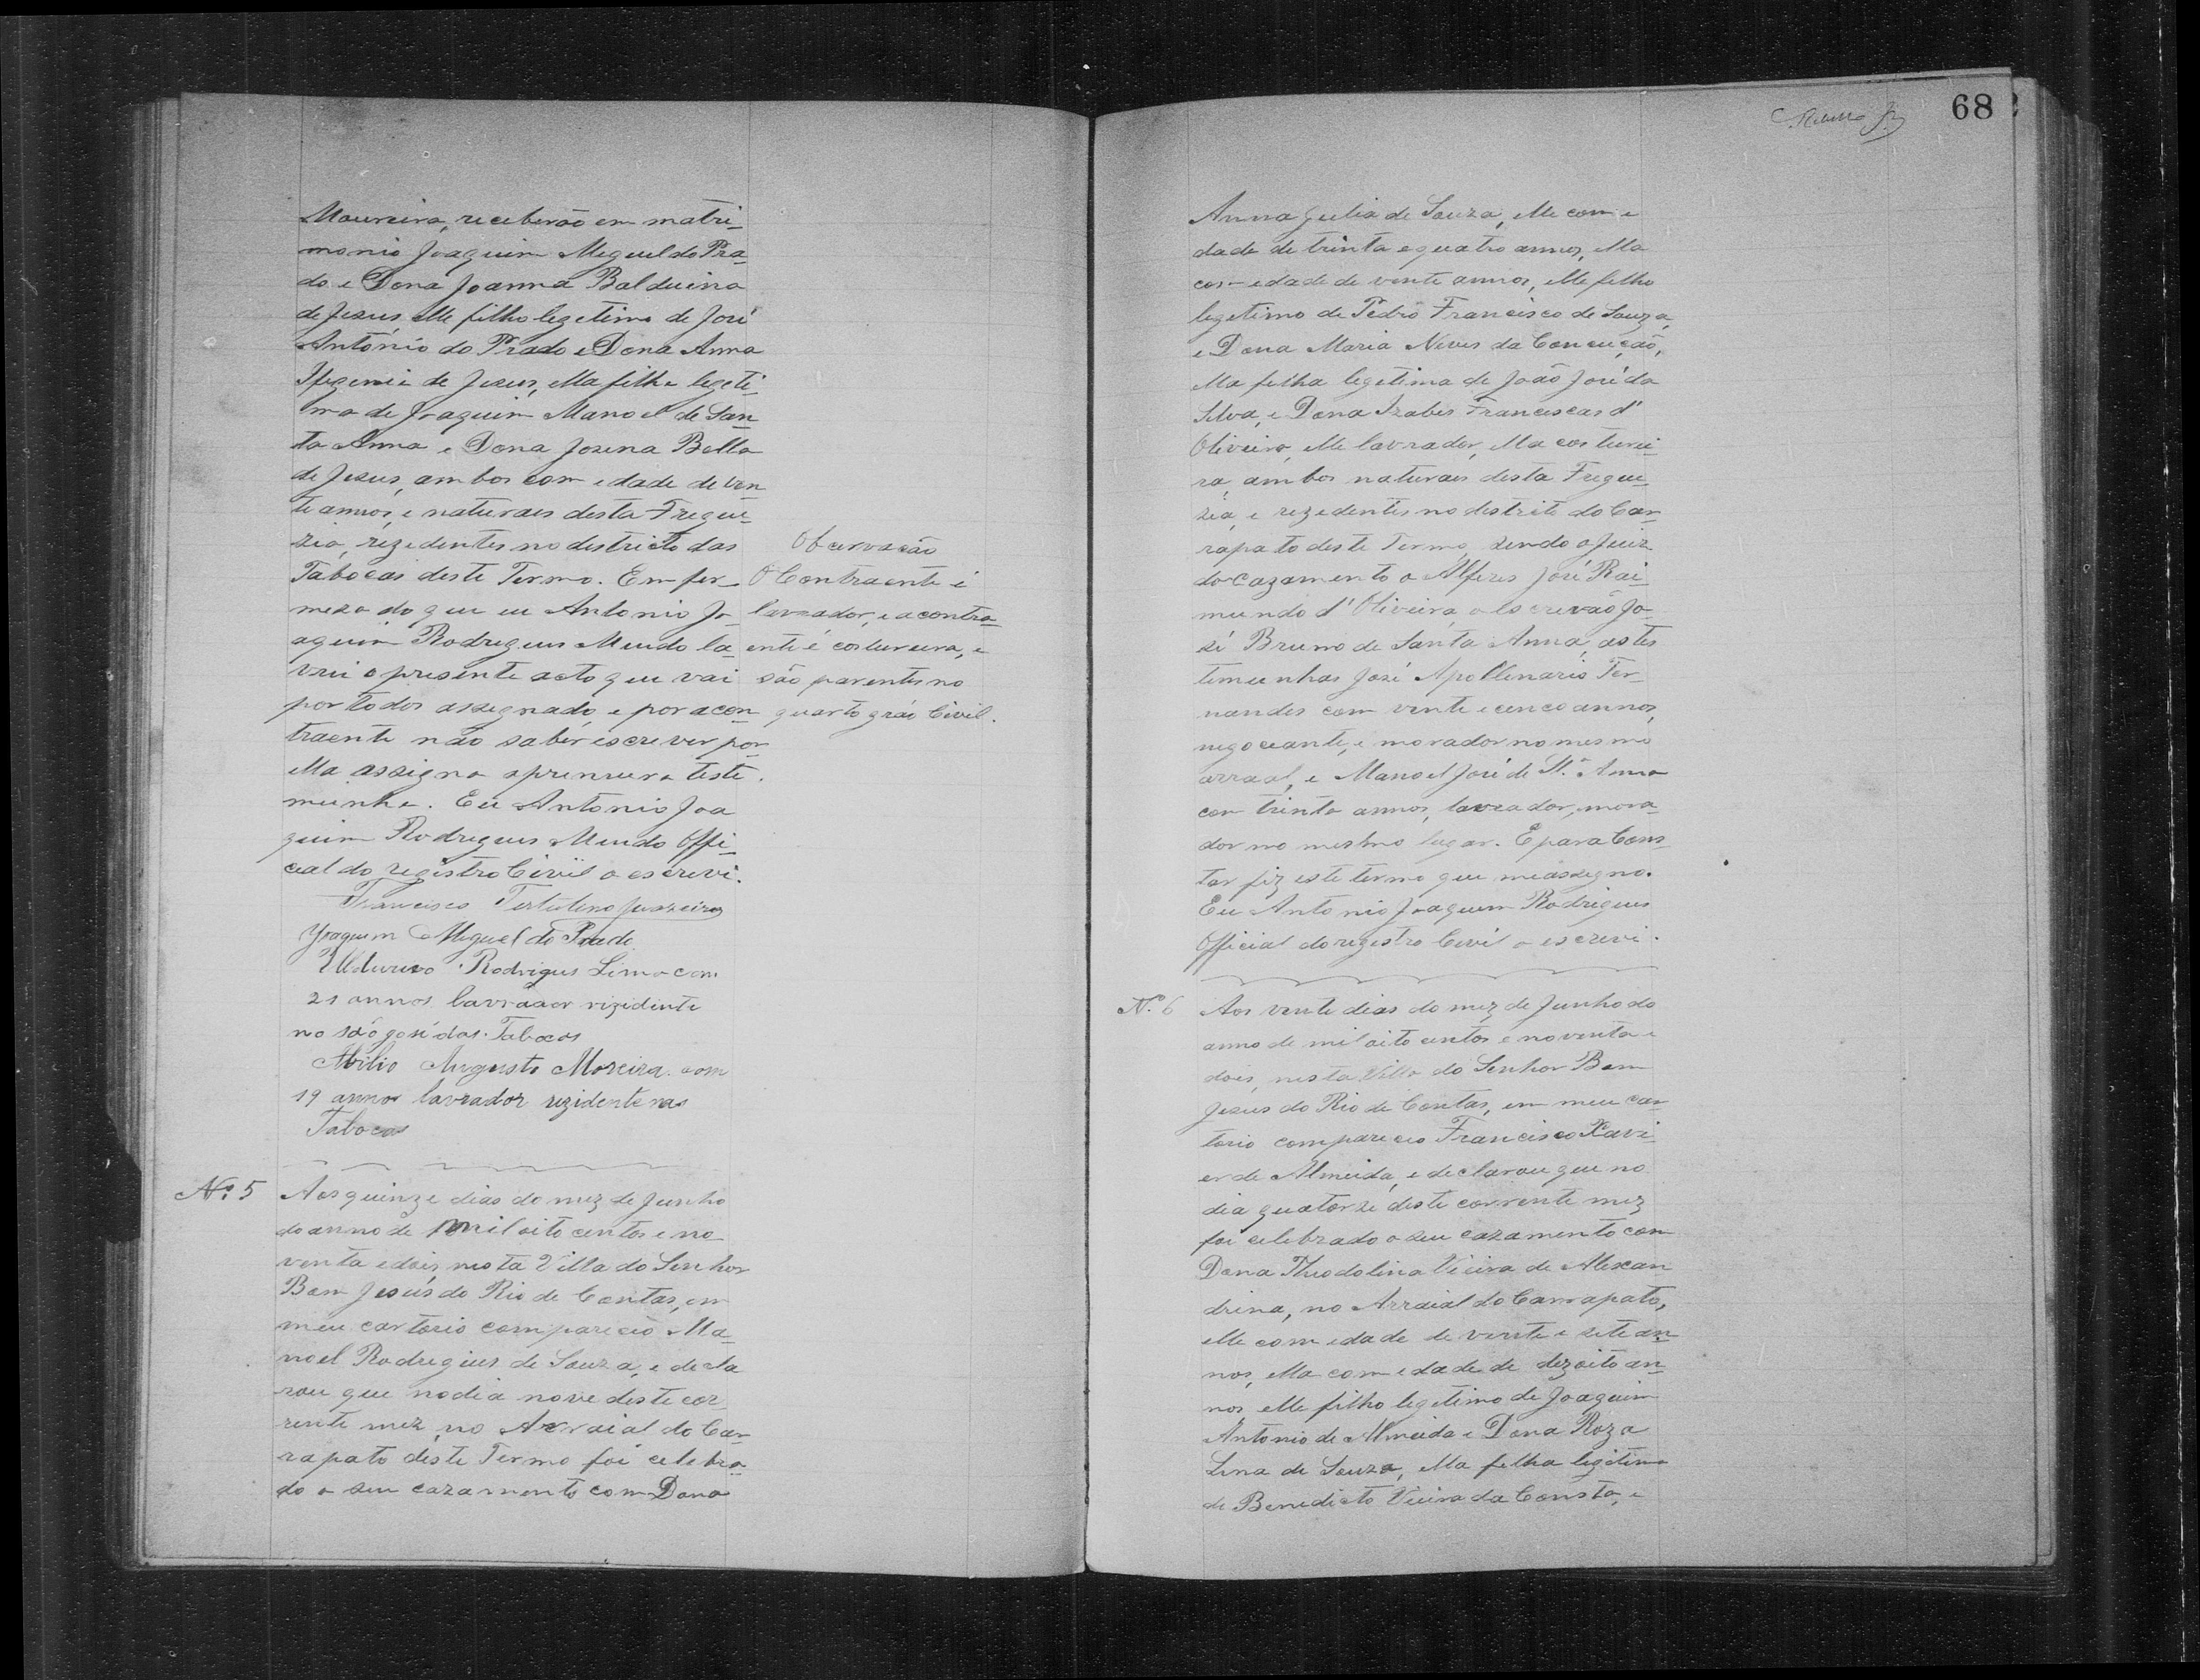 Moureira, receberão em matri-
monio Joaquim Meguel do Pra-
do e Dona Joanna Balduina
de Jesus elle filho legetimo de José
António do Prado e Dona Anna
Ifigenia de Jesus, ella filha legeti-
ma de Joaquim Manoel de San-
ta Anna e Dona Josina Bella
de Jesus, ambos com edade de vin
te annos, e naturaes desta Fregue-
zia, rezedentes no destricto das
Tabocas deste Termo. Em fir-
meza do que eu Antonio Jo-
aquim Rodregues Mendo la-
vrei o presente acto que vai
por todos assegnado, e por a con-
traente não saber escrever por
ella assigna a premeira teste-
munha. Eu Antonio Joa
quim Rodregues Mendo Offi-
cial do registro Civil o escrevi.
Francisco Tertulino
Joaquim Miguel do Prado
Rodrigues Lima com
21 annos lavrador rizidente
no São José das Tabocas
Abilio Augusto Moreira com
19 annos lavrador rezidente nas
Tabocas
Obcervação
O Contraente é
lavrador, e a contra-
ente é costureira, e
são parentes no
quarto gráo Civil.
Nº 5 Aos quinze dias do mez de Junho
do anno de mil oito centos e no
venta e dois, nesta Villa do Senhor
Bom Jesus do Rio de Contas, em
meu cartorio compareceo Ma-
noel Rodregues de Souza, e decla
rou que no dia nove deste cor-
rente mez, no Arraial do Car-
rapato deste Termo foi celebra-
do o seu cazamento com Dona
68
Anna Julia de Souza, elle com e
dade de trinta e quatro annos, ella
com edade de vinte annos, elle filho
legetimo de Pedro Francisco de Souza,
e Dona Maria Neves da Conceição,
ella filha legetima de João José da
Silva, e Dona Izabel Franciscas d'
Oliveira, elle lavrador, ella costurei-
ra, ambos naturaes desta Fregue-
zia, e rezedentes no destrito do Car-
rapato deste Termo, sendo o Juiz
do cazamento o Alferes José Rai-
mundo d'Oliveira, o Escrevão Jo-
sé Bruno de Santa Anna, as tes
temunhas José Apollenario Fer-
nandes com vinte e cenco annos,
negociante, e morador no mesmo
arraal, e Manoel José de Stª Anna
com trinta annos, lavrador, mora-
dor no mesmo lugar. E para Cons-
tar fiz este termo que me assegno.
Eu Antonio Joaquim Rodregues
Official do registro Cevil o escrevi.
Nº 6 Aos vente dias do mez de Junho do
anno de mil oito centos e noventa e
dois, nesta Villa do Senhor Bom
Jesus do Rio de Contas, em meu car
torio compareceo Francisco Xavi-
er de Almeida, e declarou que no
dia quatorze deste corrente mez
foi celebrado o seu cazamento com
Dona Theodolina Vieira de Alexan
drina, no Arraial do Carrapato,
elle com edade de vinte e sete an-
nos, ella com edade de dezoito an-
nos elle filho legetimo de Joaquim
Antonio de Almeida e Dona Roza
Lina de Souza, ella felha legitima
de Benedicto Vieira da Consta, e